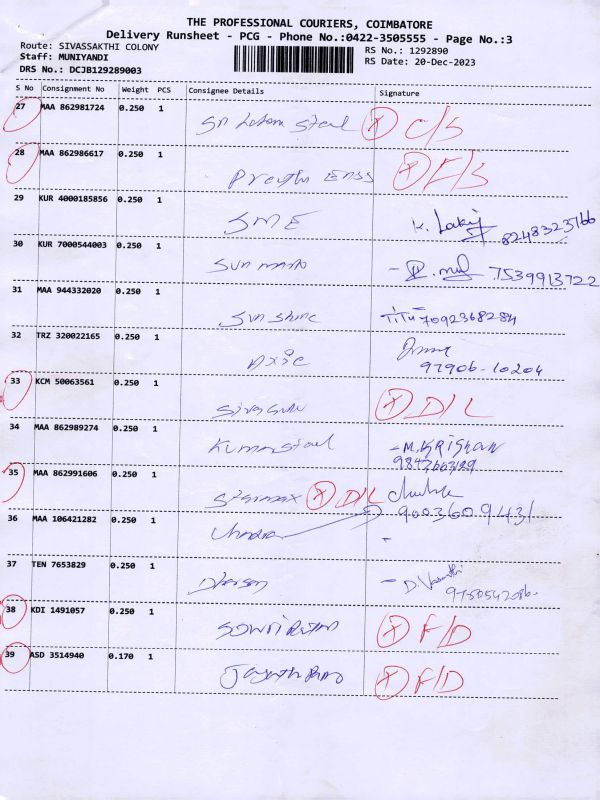 THE PROFESSIONAL COURIERS, COIMBATORE
Delivery Runsheet - PCG - Phone No.:0422-3505555 - Page No.:3
Route: SIVASSAKTHI COLONY RS No.: 1292890
Staff: MUNIYANDI RS Date: 20-Dec-2023
DRS No.: DCJB129289003
S No Consignment No Weight PCS Consignee Details Signature
27 MAA 862981724 0.250 1 Steel X C/S
28 MAA 862986617 0.250 1 X F/S
29 KUR 4000185856 0.250 1 SME K. 8248323766
30 KUR 7000544003 0.250 1 Sun 7539913722
31 MAA 944332020 0.250 1 Sun Shine Titu 7092368284
32 TRZ 320022165 0.250 1 97906-10204
33 KCM 50063561 0.250 1 X D/L
34 MAA 862989274 0.250 1 Kumar Steel - M. KRISHAN
35 MAA 862991606 0.250 1 X D/L
9003609431
36 MAA 106421282 0.250 1 Chandra
37 TEN 7653829 0.250 1 - D. Vasanthi
38 KDI 1491057 0.250 1 X F/D
39 ASD 3514940 0.170 1 X F/D